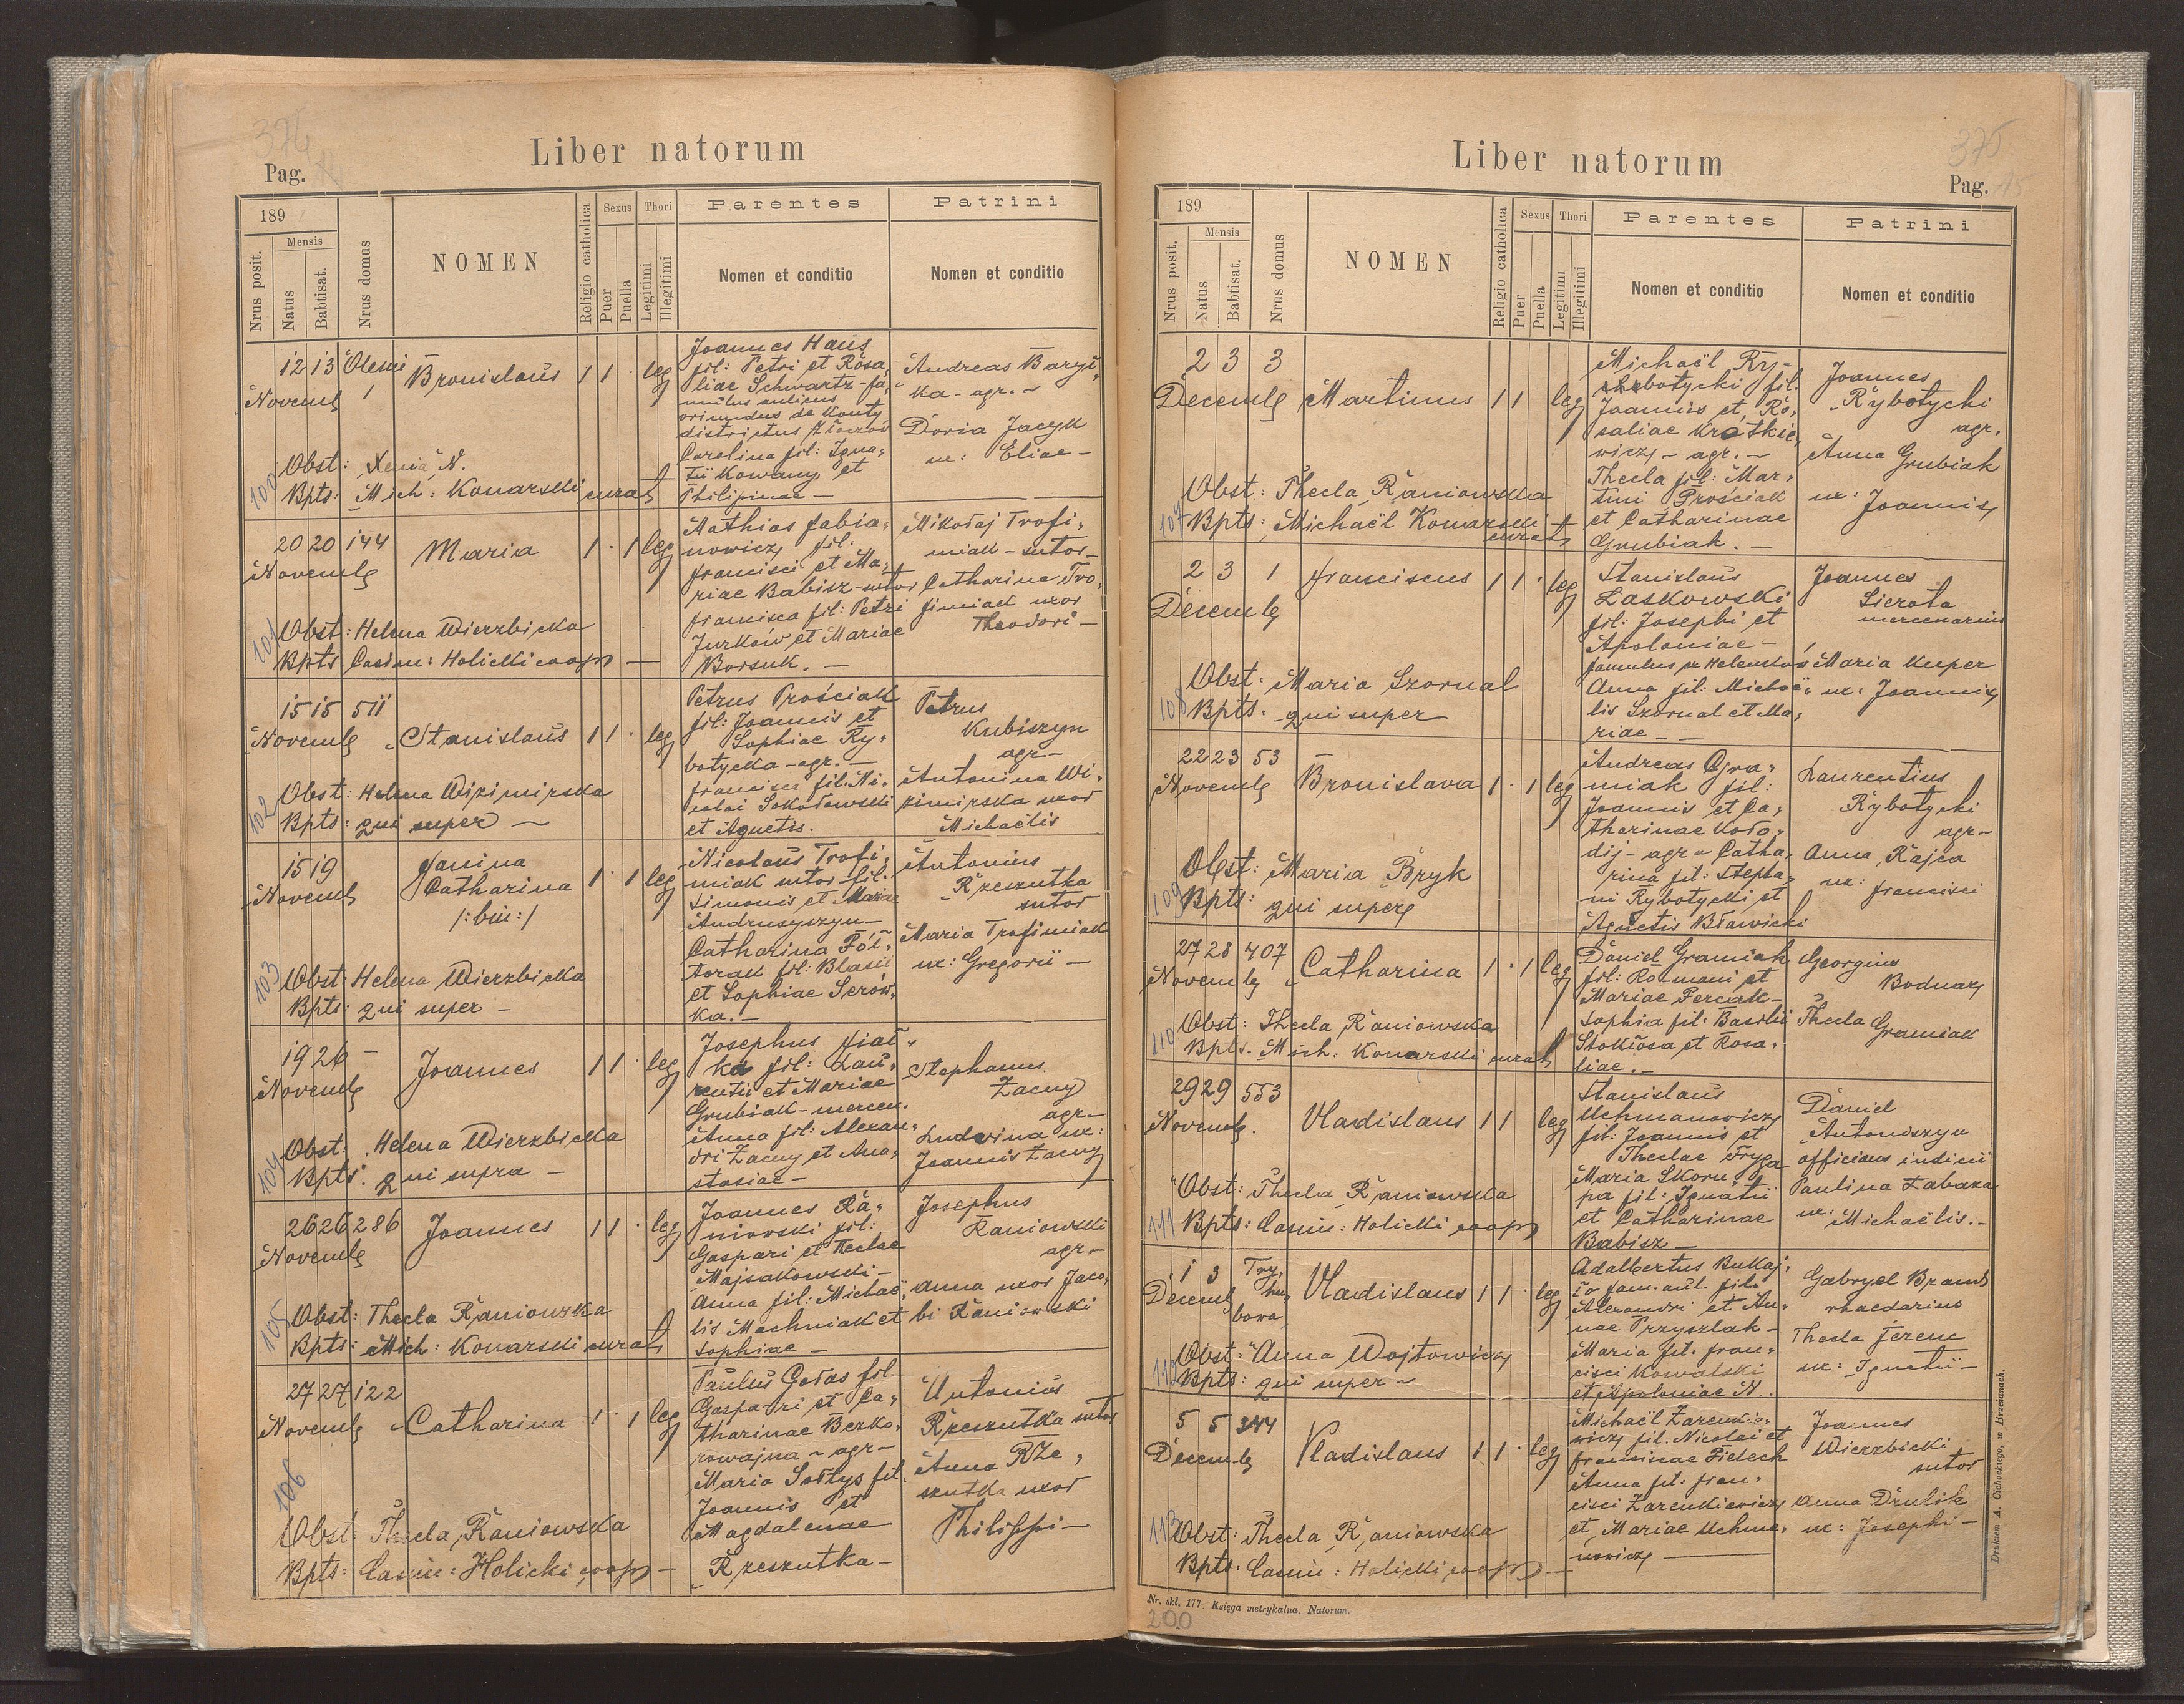 374
Liber natorum
Pag. 14
189
Nrus posit.
Mensis
Natus
Babtisat.
Nrus domus
NOMEN
Religio catholica
Sexus
Puer
Puella
Thori
Legitimi
Illegitimi
Parentes
Nomen et conditio
Patrini
Nomen et conditio
12 13 Olesni
Novemb 1
Bronislaus 1 1 · leg
Joannes Haus
fil: Petri et Rosa„
liae Schwartz - fa„
mulus aulicus
oriundus de Konty
districtus Złoczów
Carolina fil: Igna„
tii Kowany et
Philipinae —
Andreas Baryl„
ka - agr. ~
Doria Jacyk
ux: Eliae —
100
Obst: Xenia N.
Bpts: Mich: Konarski curat
20 20 144
Novemb
Maria 1 · 1 leg
Mathias Fabia„
nowicz fil:
Francisci et Ma„
riae Babisz - sutor
Francisca fil: Petri
Jurków et Mariae
Borsuk. —
Mikołaj Trofi„
miak - sutor —
Catharina Tro„
fimiak uxor
Theodori —
101
Obst: Helena Wierzbicka
Bpts Casim: Holicki coop —
15 15 511
Novemb
Stanislaus 1 1 · leg
Petrus Prościak
fil: Joannis et
Sophiae Ry„
botycka - agr. —
Francisca fil: Ni„
colai Sokołowski
et Agnetis.
Petrus
Kubiszyn
agr —
Antonina Wi„
zimirska uxor
Michaëlis
102
Obst: Helena Wizimirska
Bpts: qui super ~
15 19
Novemb
Janina
Catharina
/: bin: /
1 · 1 leg
Nicolaus Trofi„
miak sutor - fil:
Simonis et Mariae
Andrusyszyn —
Catharina Pół„
torak fil: Blasii
et Sophiae Serów„
ka. —
Antonius
Rzeszutka
sutor
Maria Trofimiak
ux: Gregorii —
103
Obst: Helena Wierzbicka
Bpts: qui super —
19 26 —
Novemb
Joannes 1 1 · leg
Josephus Fiał„
ka fil: Lau„
rentii et Mariae
Grubiak - mercen.
Anna fil: Alexan„
dri Zacny et Ana„
stasiae —
Stephanus
Zacny
agr —
Ludvina ux:
Joannis Zacny
104
Obst: Helena Wierzbicka
Bpts: qui supra —
26 26 286
Novemb
Joannes 1 1 · leg
Joannes Ra„
niowski fil:
Gaspari et Theclae
Majsakowski —
Anna fil: Michaë„
lis Machniak et
Sophiae —
Josephus
Raniowski
agr —
Anna uxor Jaco„
bi Raniowski
105
Obst: Thecla Raniowska
Bpts: Mich: Konarski curat
27 27 122
Novemb
Catharina 1 · 1 leg
Paulus Gołas fil.
Gaspari et Ca„
tharinae Bezko„
rowajna - agr —
Maria Sołtys fil.
Joannis et
Magdalenae
Rzeszutka —
Antonius
Rzeszutka sutor
Anna Rze„
szutka uxor
Philippi —
106
Obst Thecla Raniowska
Bpts: Casim: Holicki coop —
375
Liber natorum
Pag. 15
189
Nrus posit.
Mensis
Natus
Babtisat.
Nrus domus
NOMEN
Religio catholica
Sexus
Puer
Puella
Thori
Legitimi
Illegitimi
Parentes
Nomen et conditio
Patrini
Nomen et conditio
2 3 3
Decemb
Martinus 1 1 leg
Michaël Ry-
botycki fil.
Joannis et Ro„
saliae Krotkie„
wicz - agr. ~
Thecla fil: Mar„
tini Prościak
et Catharinae
Grubiak. —
Joannes
Rybotycki
agr.
Anna Grubiak
ux: Joannis
107
Obst: Thecla Raniowska
Bpts: Michaël Konarski
curat
2 3 1
Decemb
Franciscus 1 1 · leg
Stanislaus
Laskowski
fil: Josephi et
Apoloniae —
famulus ex Helenków
Anna fil: Michaë„
lis Szornal et Ma„
riae — —
Joannes
Sierota
mercenarius
Maria Kuper
ux: Joannis
108
Obst: Maria Szornal
Bpts: qui super
22 23 53
Novemb
Bronislava 1 · 1 leg
Andreas Gra„
miak fil:
Joannis et Ca„
tharinae Koło„
dij - agr ~ Catha„
rina fil: Stepha„
ni Rybotycki et
Agnetis Bławicki
Laurentius
Rybotycki
agr ~
Anna Rajca
ux: Francisci
109
Obst: Maria Bryk
Bpts: qui super
27 28 407
Novemb
Catharina 1 · 1 leg
Daniel Gramiak
fil: Romani et
Mariae Perciak —
Sophia fil: Basilii
Stokłosa et Rosa„
liae. —
Georgius
Bodnar
Thecla
Gramiak
110
Obst: Thecla Raniowska
Bpts. Mich: Konarski curat
29 29 553
Novemb.
Vladislaus 1 1 leg
Stanislaus
Uchmanowicz
fil: Joannis et
Theclae Fryga
Maria Skoru„
pa fil: Ignatii
et Catharinae
Babisz —
Daniel
Antoniszyn
officians iudicii
Paulina Łabaza
ux: Michaëlis. —
111
Obst: Thecla Raniowska
Bpts: Casim: Holicki coop
1 3 Try„
Decemb hu„
bowa
Vladislaus 1 1 · leg
Adalbertus Bukaj„
ło fam. aul. fil:
Alexandri et An„
nae Przyszlak —
Maria fil. Fran„
cisci Kowalski
et Apoloniae N.
Gabryel Brand
rhaedarius
Thecla Ferenc
ux: Ignatii —
112
Obst: Anna Wojtowicz
Bpts: qui super ~
5 5 344
Decemb
Vladislaus 1 1 · leg
Michaël Zarenkie„
wicz fil. Nicolai et
Franciscae Fielech
Anna fil: Fran„
cisci Zarenkiewicz
et Mariae Uchma„
nowicz —
Joannes
Wierzbicki
sutor
Anna Drulik
ux: Josephi —
113
Obst: Thecla Raniowska
Bpts. Casim: Holicki coop —
Drukiem A. Cichockiego, w Brzeżanach.
Nr. skł. 177 Księga metrykalna. Natorum.
200